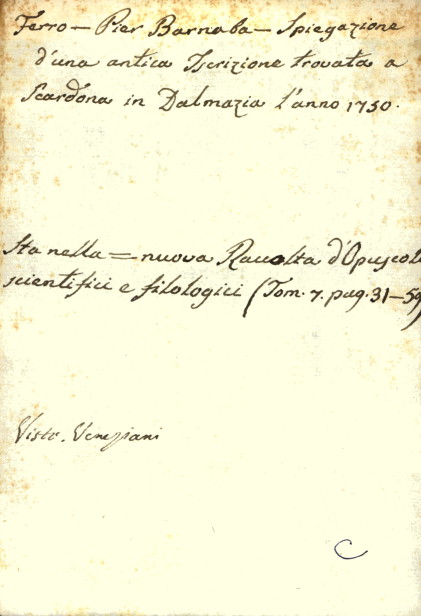 Ferro — Pier Barnaba — Spiegazione
d'una antica Iscrizione trovata a
Scardona in Dalmazia l'anno 1750.
Sta nella = nuova Raccolta d'Opuscoli
scientifici e filologici (Tom. 7. pag. 31—59)
Visto. Veneziani
C